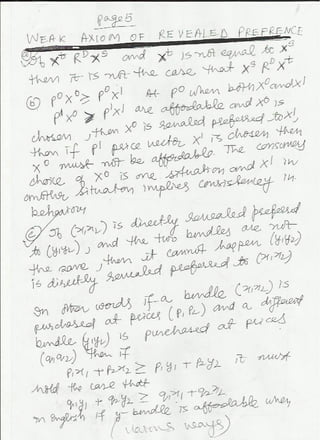 page 5
WEAK AXIOM OF REVEALED PREFRENCE
(a) If Xᵗ Rᴰ Xˢ and Xᵗ is not equal to Xˢ
then it is not the case that Xˢ Rᴰ Xᵗ
(b) P⁰X⁰ ≥ P⁰X¹ At P⁰ when both X⁰ and X¹
P¹X⁰ > P¹X¹ are affordable and X⁰ is
chosen, then X⁰ is revealed prefered to X¹,
then if P¹ price vector X¹ is chosen then
X⁰ must not be affordable. The consumers
choice of X⁰ is one situation and X¹ in
another situation implies consistency in
behaviour
(c) If (x₁x₂) is directly revealed prefered
to (y₁y₂), and the two bundles are not
the same, then it cannot happen (y₁y₂)
is directly revealed prefered to (x₁x₂)
In other words if a bundle (x₁x₂) is
purchased at prices (P₁ P₂) and a different
bundle (y₁y₂) is purchased at prices
(q₁q₂) then if
P₁x₁ + P₂x₂ ≥ P₁y₁ + P₂y₂ it must
hold the case that
q₁y₁ + q₂y₂ ≥ q₁x₁ + q₂x₂
In english if y-bundle is affordable when
(various ways)